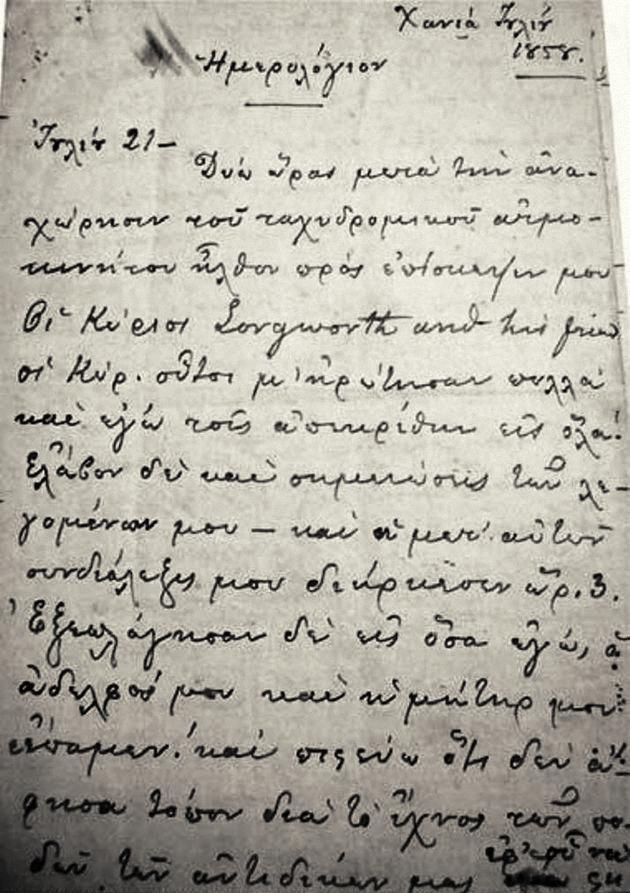 Χανιά Ἰουλίου
1858.
Ἡμερολόγιον
Ἰουλίου 21 —
Δύω ὥρας μετὰ τὴν ἀνα-
χώρησιν τοῦ ταχυδρομικοῦ ἀτμο-
κινήτου ἦλθον πρὸς ἐπίσκεψιν μου
Οἱ Κύριοι Longworth and his friend
οἱ Κύρ. οὗτοι μ' ἠρώτησαν πολλὰ
καὶ ἐγὼ τοῖς ἀπεκρίθην εἰς ὅλα!
ἔλαβον δὲ καὶ σημειώσεις τῶν λε-
γομένων μου — καὶ ἡ μετ' αὐτῶν
συνδιάλεξις μου διήρκεσεν ὥρ. 3.
Ἐξεπλάγησαν δὲ εἰς ὅσα ἐγὼ, ὁ
ἀδελφός μου καὶ ἡ μήτηρ μου
εἴπαμεν! καὶ πιςεύω ὅτι δὲν
φησα τόπον διὰ τὸ ἴχνος τῶν πο-
δῶν τῶν ἀντιδίκων μας